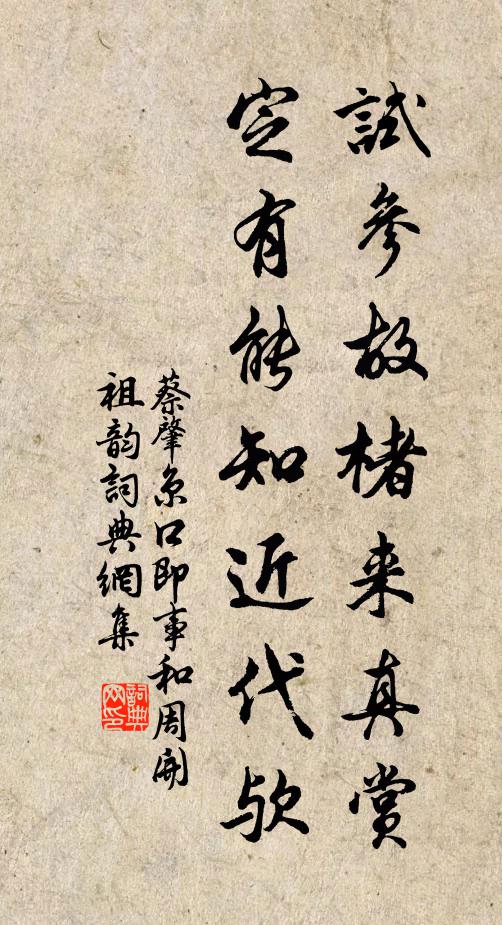 試參故楮来真賞
定有能知近代欤
蔡肇京口即事和周開
祖韵詞典網集
詞典网印